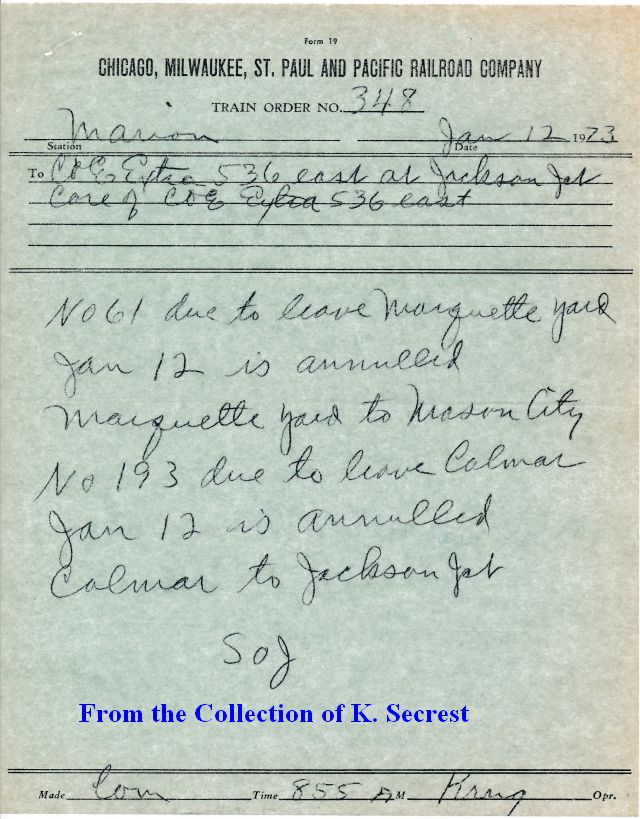 Form 19
CHICAGO, MILWAUKEE, ST. PAUL AND PACIFIC RAILROAD COMPANY
TRAIN ORDER NO. 348
Marion Jan 12 1973
Station Date
To C&E Extra 536 east at Jackson Jct
Care of C&E Extra 536 east
No 61 due to leave Marquette yard
Jan 12 is annulled
Marquette yard to Mason City
No 193 due to leave Calmar
Jan 12 is annulled
Calmar to Jackson Jct
SOJ
From the Collection of K. Secrest
Made Com Time 855 AM Krug Opr.